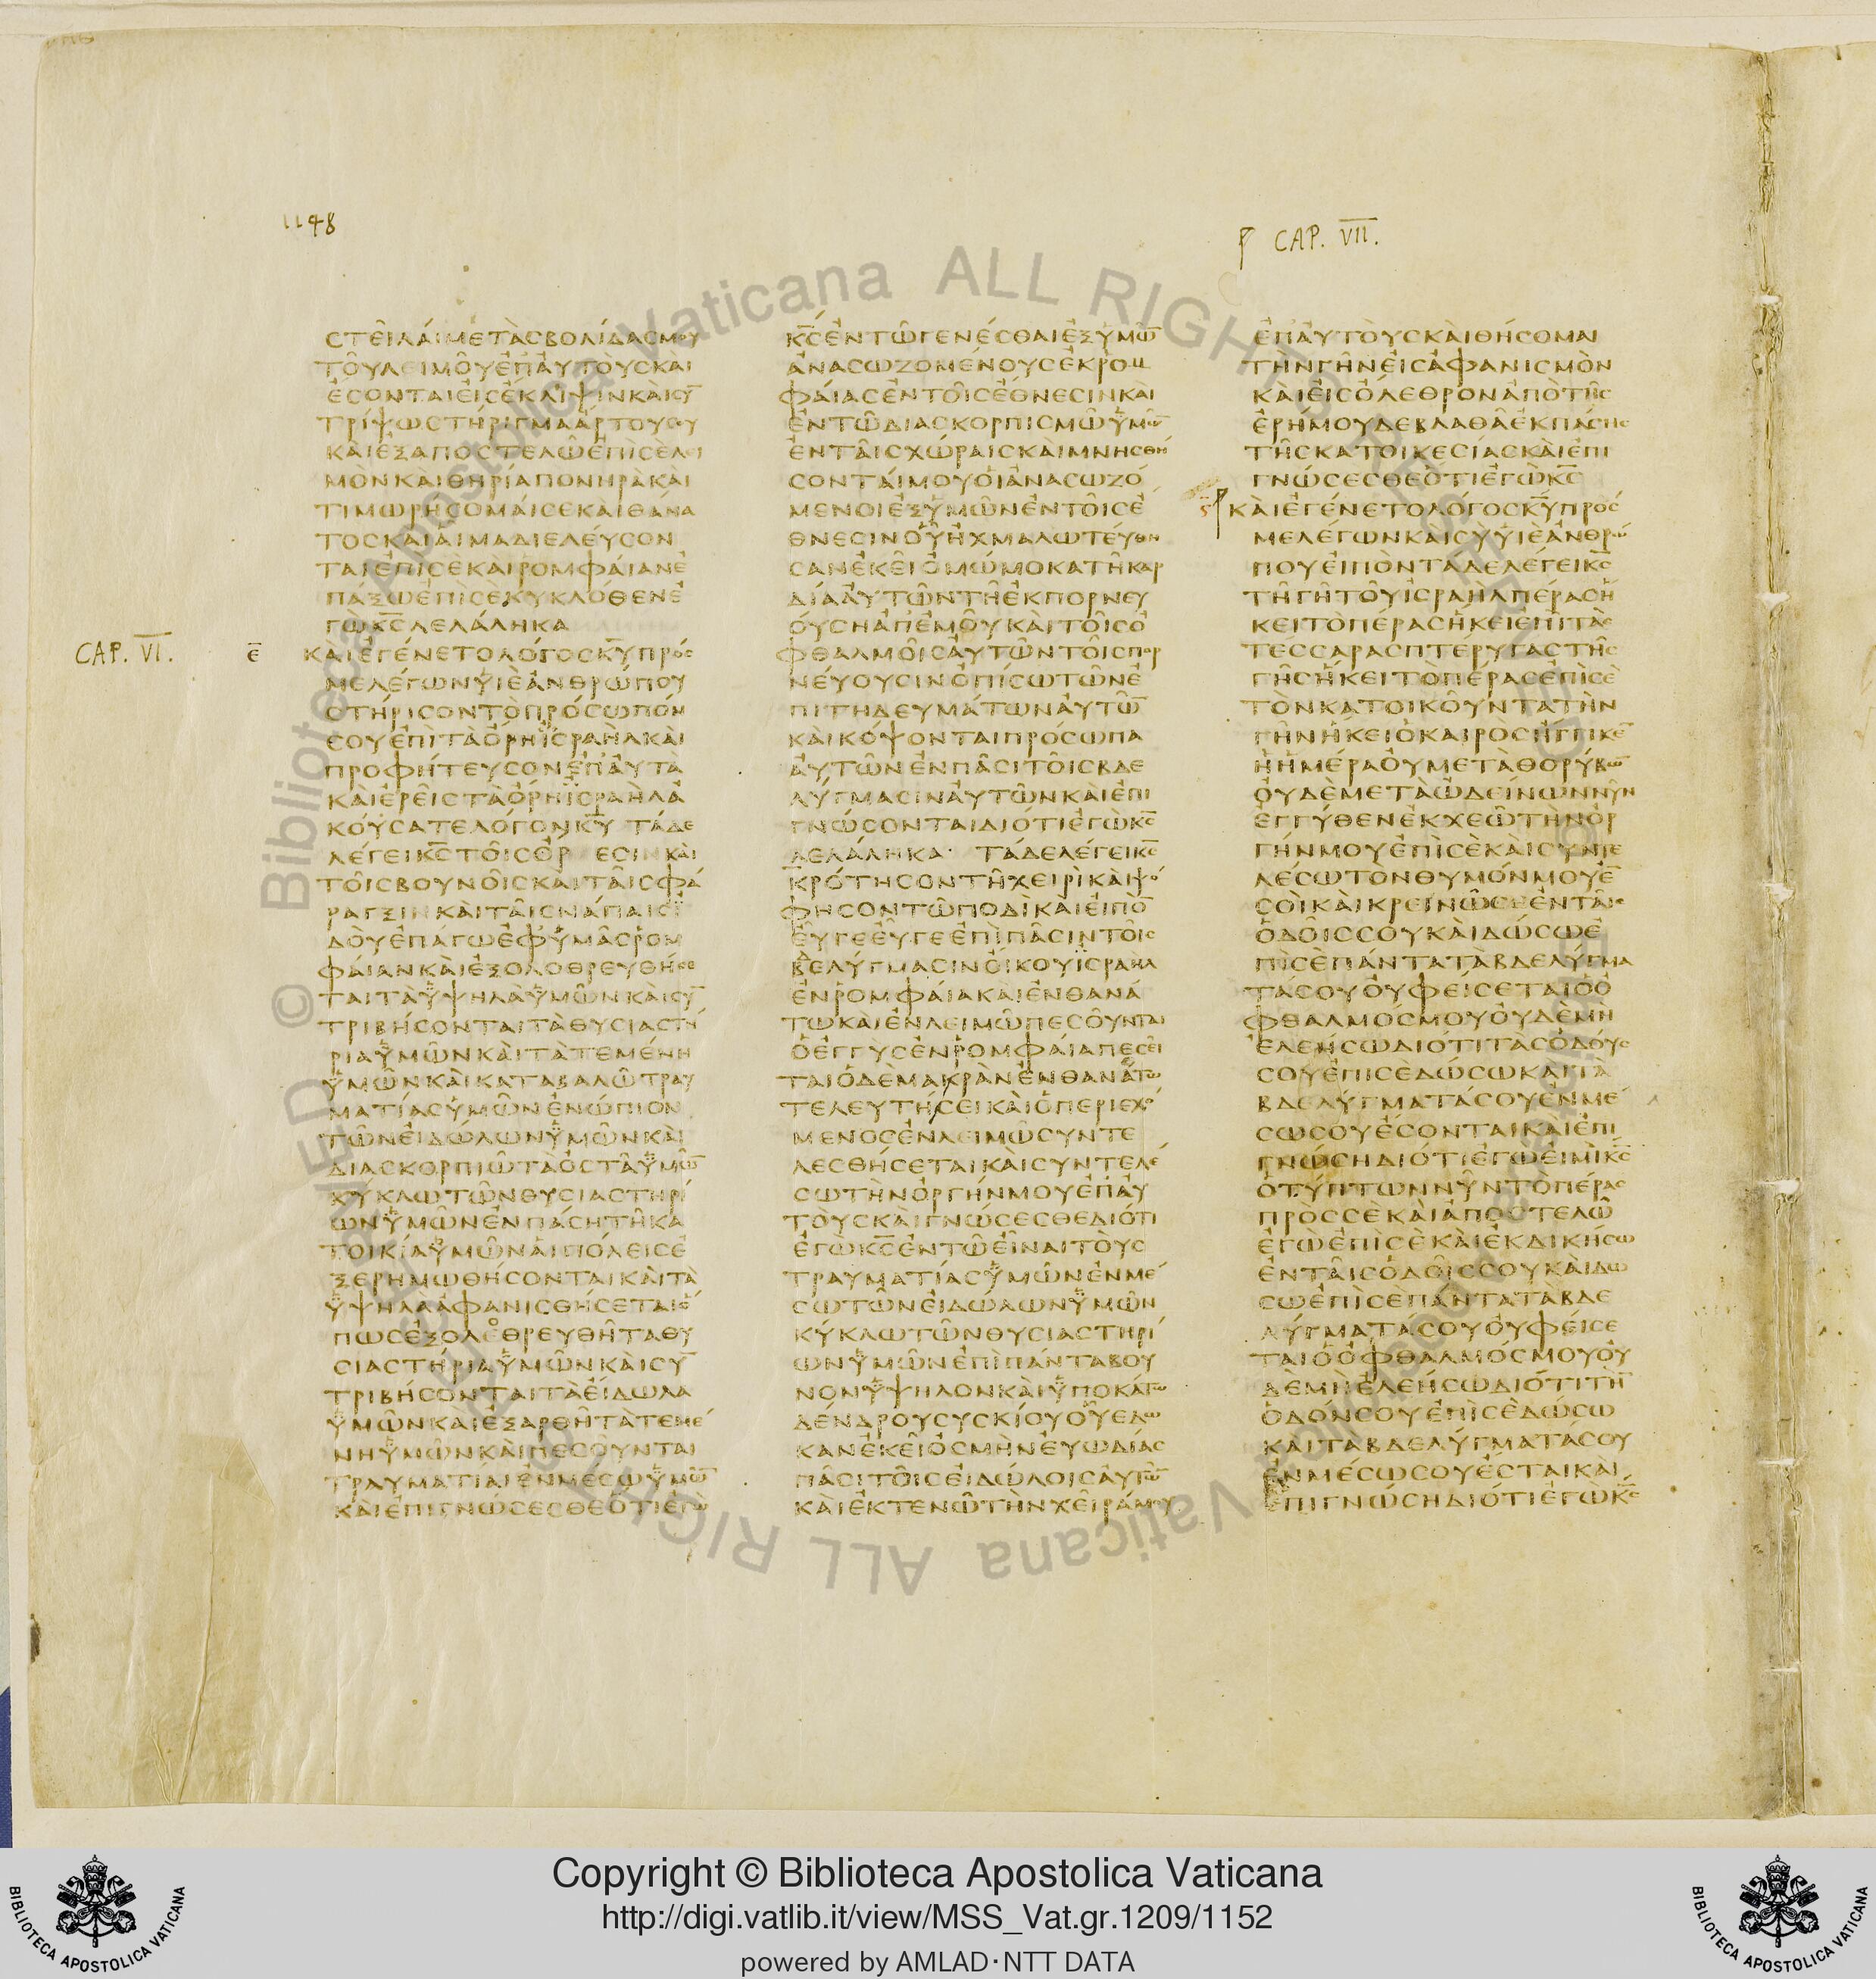 1148
CAP. VII.
ϹΤΕΙΛΑΙΜΕΤΑϹΒΟΛΙΔΑϹΜΟΥ
ΤΟΥΛΕΙΜΟΥΕΠΑΥΤΟΥϹΚΑΙ
ΕϹΟΝΤΑΙΕΙϹΕΚΛΙΨΙΝΚΑΙϹΥ̅
ΤΡΙΨΩϹΤΗΡΙΓΜΑΑΡΤΟΥϹΟΥ
ΚΑΙΕΞΑΠΟϹΤΕΛΩΕΠΙϹΕΛΕΙ
ΜΟΝΚΑΙΘΗΡΙΑΠΟΝΗΡΑΚΑΙ
ΤΙΜΩΡΗϹΟΜΑΙϹΕΚΑΙΘΑΝΑ
ΤΟϹΚΑΙΑΙΜΑΔΙΕΛΕΥϹΟΝ
ΤΑΙΕΠΙϹΕΚΑΙΡΟΜΦΑΙΑΝΕ
ΠΑΞΩΕΠΙϹΕΚΥΚΛΟΘΕΝΕ
ΓΩΚ̅Ϲ̅ΛΕΛΑΛΗΚΑ
CAP. VI.
Ε̅
ΚΑΙΕΓΕΝΕΤΟΛΟΓΟϹΚ̅Υ̅ΠΡΟϹ
ΜΕΛΕΓΩΝΥΙΕΑΝΘΡΩΠΟΥ
ϹΤΗΡΙϹΟΝΤΟΠΡΟϹΩΠΟΝ
ϹΟΥΕΠΙΤΑΟΡΗΙϹΡΑΗΛΚΑΙ
ΠΡΟΦΗΤΕΥϹΟΝΕΠΑΥΤΑ
ΚΑΙΕΡΕΙϹΤΑΟΡΗΙϹΡΑΗΛΑ
ΚΟΥϹΑΤΕΛΟΓΟΝΚ̅Υ̅ ΤΑΔΕ
ΛΕΓΕΙΚ̅Ϲ̅ΤΟΙϹΟΡ ΕϹΙΝΚΑΙ
ΤΟΙϹΒΟΥΝΟΙϹΚΑΙΤΑΙϹΦΑ
ΡΑΓΞΙΝΚΑΙΤΑΙϹΝΑΠΑΙϹΙ
ΔΟΥΕΠΑΓΩΕΦΥΜΑϹΡΟΜ
ΦΑΙΑΝΚΑΙΕΞΟΛΟΘΡΕΥΘΗϹΕ
ΤΑΙΤΑΥΨΗΛΑΥΜΩΝΚΑΙϹΥ̅
ΤΡΙΒΗϹΟΝΤΑΙΤΑΘΥϹΙΑϹΤΗ
ΡΙΑΥΜΩΝΚΑΙΤΑΤΕΜΕΝΗ
ΥΜΩΝΚΑΙΚΑΤΑΒΑΛΩΤΡΑΥ
ΜΑΤΙΑϹΥΜΩΝΕΝΩΠΙΟΝ
ΤΩΝΕΙΔΩΛΩΝΥΜΩΝΚΑΙ
ΔΙΑϹΚΟΡΠΙΩΤΑΟϹΤΑΥΜΩ̅
ΚΥΚΛΩΤΩΝΘΥϹΙΑϹΤΗΡΙ
ΩΝΥΜΩΝΕΝΠΑϹΗΤΗΚΑ
ΤΟΙΚΙΑΥΜΩΝΑΙΠΟΛΕΙϹΕ
ΞΕΡΗΜΩΘΗϹΟΝΤΑΙΚΑΙΤΑ
ΥΨΗΛΑΑΦΑΝΙϹΘΗϹΕΤΑΙΟ
ΠΩϹΕΞΟΛΕΘΡΕΥΘΗΤΑΘΥ
ϹΙΑϹΤΗΡΙΑΥΜΩΝΚΑΙϹΥ̅
ΤΡΙΒΗϹΟΝΤΑΙΤΑΕΙΔΩΛΑ
ΥΜΩΝΚΑΙΕΞΑΡΘΗΤΑΤΕΜΕ
ΝΗΥΜΩΝΚΑΙΠΕϹΟΥΝΤΑΙ
ΤΡΑΥΜΑΤΙΑΙΕΝΜΕϹΩΥΜΩ̅
ΚΑΙΕΠΙΓΝΩϹΕϹΘΕΟΤΙΕΓΩ
Κ̅Ϲ̅ΕΝΤΩΓΕΝΕϹΘΑΙΕΞΥΜΩ̅
ΑΝΑϹΩΖΟΜΕΝΟΥϹΕΚΡΟΜ
ΦΑΙΑϹΕΝΤΟΙϹΕΘΝΕϹΙΝΚΑΙ
ΕΝΤΩΔΙΑϹΚΟΡΠΙϹΜΩΥΜΩ̅
ΕΝΤΑΙϹΧΩΡΑΙϹΚΑΙΜΝΗϹΘΗ
ϹΟΝΤΑΙΜΟΥΟΙΑΝΑϹΩΖΟ
ΜΕΝΟΙΕΞΥΜΩΝΕΝΤΟΙϹΕ
ΘΝΕϹΙΝΟΥΗΧΜΑΛΩΤΕΥΘΗ
ϹΑΝΕΚΕΙΟΜΩΜΟΚΑΤΗΚΑΡ
ΔΙΑΑΥΤΩΝΤΗΕΚΠΟΡΝΕΥ
ΟΥϹΗΑΠΕΜΟΥΚΑΙΤΟΙϹΟ
ΦΘΑΛΜΟΙϹΑΥΤΩΝΤΟΙϹΠΟΡ
ΝΕΥΟΥϹΙΝΟΠΙϹΩΤΩΝΕ
ΠΙΤΗΔΕΥΜΑΤΩΝΑΥΤΩ̅
ΚΑΙΚΟΨΟΝΤΑΙΠΡΟϹΩΠΑ
ΑΥΤΩΝΕΝΠΑϹΙΤΟΙϹΒΔΕ
ΛΥΓΜΑϹΙΝΑΥΤΩΝΚΑΙΕΠΙ
ΓΝΩϹΟΝΤΑΙΔΙΟΤΙΕΓΩΚ̅Ϲ̅
ΛΕΛΑΛΗΚΑ· ΤΑΔΕΛΕΓΕΙΚ̅Ϲ̅
ΚΡΟΤΗϹΟΝΤΗΧΕΙΡΙΚΑΙΨΟ
ΦΗϹΟΝΤΩΠΟΔΙΚΑΙΕΙΠΟ̅
ΕΥΓΕΕΥΓΕΕΠΙΠΑϹΙΝΤΟΙϹ
ΒΔΕΛΥΓΜΑϹΙΝΟΙΚΟΥΙϹΡΑΗΛ
ΕΝΡΟΜΦΑΙΑΚΑΙΕΝΘΑΝΑ
ΤΩΚΑΙΕΝΛΕΙΜΩΠΕϹΟΥΝΤΑΙ
ΟΕΓΓΥϹΕΝΡΟΜΦΑΙΑΠΕϹΕΙ
ΤΑΙΟΔΕΜΑΚΡΑΝΕΝΘΑΝΑΤΩ
ΤΕΛΕΥΤΗϹΕΙΚΑΙΟΠΕΡΙΕΧΟ
ΜΕΝΟϹΕΝΛΕΙΜΩϹΥΝΤΕ
ΛΕϹΘΗϹΕΤΑΙΚΑΙϹΥΝΤΕΛΕ
ϹΩΤΗΝΟΡΓΗΝΜΟΥΕΠΑΥ
ΤΟΥϹΚΑΙΓΝΩϹΕϹΘΕΔΙΟΤΙ
ΕΓΩΚ̅Ϲ̅ΕΝΤΩΕΙΝΑΙΤΟΥϹ
ΤΡΑΥΜΑΤΙΑϹΥΜΩΝΕΝΜΕ
ϹΩΤΩΝΕΙΔΩΛΩΝΥΜΩΝ
ΚΥΚΛΩΤΩΝΘΥϹΙΑϹΤΗΡΙ
ΩΝΥΜΩΝΕΠΙΠΑΝΤΑΒΟΥ
ΝΟΝΥΨΗΛΟΝΚΑΙΥΠΟΚΑΤΩ
ΔΕΝΔΡΟΥϹΥϹΚΙΟΥΟΥΕΔΩ
ΚΑΝΕΚΕΙΟϹΜΗΝΕΥΩΔΙΑϹ
ΠΑϹΙΤΟΙϹΕΙΔΩΛΟΙϹΑΥΤΩ̅
ΚΑΙΕΚΤΕΝΩΤΗΝΧΕΙΡΑΜΟΥ
ΕΠΑΥΤΟΥϹΚΑΙΘΗϹΟΜΑΙ
ΤΗΝΓΗΝΕΙϹΑΦΑΝΙϹΜΟΝ
ΚΑΙΕΙϹΟΛΕΘΡΟΝΑΠΟΤΗϹ
ΕΡΗΜΟΥΔΕΒΛΑΘΑΕΚΠΑϹΗϹ
ΤΗϹΚΑΤΟΙΚΕϹΙΑϹΚΑΙΕΠΙ
ΓΝΩϹΕϹΘΕΟΤΙΕΓΩΚ̅Ϲ̅
ΚΑΙΕΓΕΝΕΤΟΛΟΓΟϹΚ̅Υ̅ΠΡΟϹ
ΜΕΛΕΓΩΝΚΑΙϹΥΥΙΕΑΝΘΡΩ
ΠΟΥΕΙΠΟΝΤΑΔΕΛΕΓΕΙΚ̅Ϲ̅
ΤΗΓΗΤΟΥΙϹΡΑΗΛΠΕΡΑϹΗ
ΚΕΙΤΟΠΕΡΑϹΗΚΕΙΕΠΙΤΑϹ
ΤΕϹϹΑΡΑϹΠΤΕΡΥΓΑϹΤΗϹ
ΓΗϹΗΚΕΙΤΟΠΕΡΑϹΕΠΙϹΕ
ΤΟΝΚΑΤΟΙΚΟΥΝΤΑΤΗΝ
ΓΗΝΗΚΕΙΟΚΑΙΡΟϹΗΓΓΙΚΕ̅
ΗΗΜΕΡΑΟΥΜΕΤΑΘΟΡΥΒΩ̅
ΟΥΔΕΜΕΤΑΩΔΕΙΝΩΝΝΥΝ
ΕΓΓΥΘΕΝΕΚΧΕΩΤΗΝΟΡ
ΓΗΝΜΟΥΕΠΙϹΕΚΑΙϹΥΝΤΕ
ΛΕϹΩΤΟΝΘΥΜΟΝΜΟΥΕ̅
ϹΟΙΚΑΙΚΡΕΙΝΩϹΕΕΝΤΑΙϹ
ΟΔΟΙϹϹΟΥΚΑΙΔΩϹΩΕ
ΠΙϹΕΠΑΝΤΑΤΑΒΔΕΛΥΓΜΑ
ΤΑϹΟΥΟΥΦΕΙϹΕΤΑΙΟΟ
ΦΘΑΛΜΟϹΜΟΥΟΥΔΕΜΗ
ΕΛΕΗϹΩΔΙΟΤΙΤΑϹΟΔΟΥϹ
ϹΟΥΕΠΙϹΕΔΩϹΩΚΑΙΤΑ
ΒΔΕΛΥΓΜΑΤΑϹΟΥΕΝΜΕ
ϹΩϹΟΥΕϹΟΝΤΑΙΚΑΙΕΠΙ
ΓΝΩϹΗΔΙΟΤΙΕΓΩΕΙΜΙΚ̅Ϲ̅
ΟΤΥΠΤΩΝΝΥΝΤΟΠΕΡΑϹ
ΠΡΟϹϹΕΚΑΙΑΠΟϹΤΕΛΩ
ΕΓΩΕΠΙϹΕΚΑΙΕΚΔΙΚΗϹΩ
ΕΝΤΑΙϹΟΔΟΙϹϹΟΥΚΑΙΔΩ
ϹΩΕΠΙϹΕΠΑΝΤΑΤΑΒΔΕ
ΛΥΓΜΑΤΑϹΟΥΟΥΦΕΙϹΕ
ΤΑΙΟΟΦΘΑΛΜΟϹΜΟΥΟΥ
ΔΕΜΗΕΛΕΗϹΩΔΙΟΤΙΤΗ̅
ΟΔΟΝϹΟΥΕΠΙϹΕΔΩϹΩ
ΚΑΙΤΑΒΔΕΛΥΓΜΑΤΑϹΟΥ
ΕΝΜΕϹΩϹΟΥΕϹΤΑΙΚΑΙ
ΕΠΙΓΝΩϹΗΔΙΟΤΙΕΓΩΚ̅Ϲ̅
© Biblioteca Apostolica Vaticana ALL RIGHTS RESERVED
© Biblioteca Apostolica Vaticana ALL RIGHTS RESERVED
Copyright © Biblioteca Apostolica Vaticana
http://digi.vatlib.it/view/MSS_Vat.gr.1209/1152
powered by AMLAD·NTT DATA
BIBLIOTECA APOSTOLICA VATICANA
BIBLIOTECA APOSTOLICA VATICANA